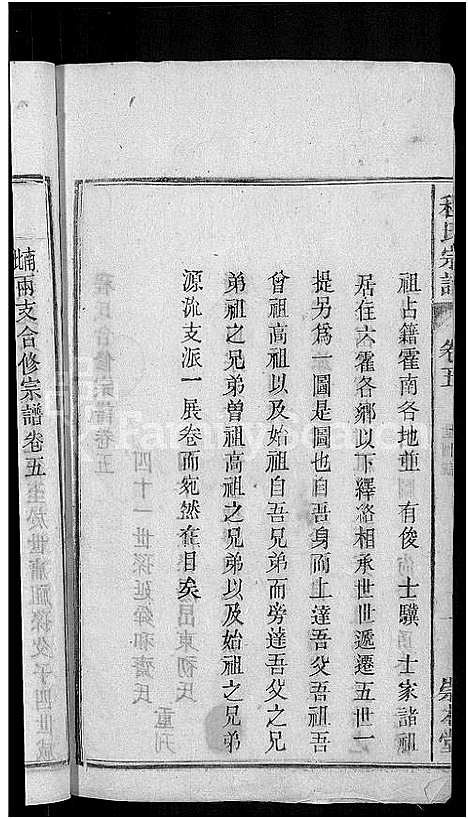 程氏宗譜
卷五
一
崇本堂
祖占籍霍南各地並 有俊 士驥 士家諸祖
居住六霍各鄉以下繹絡相承世世遞遷五世一
提另為一圖是圖也自吾身而上達吾父吾祖吾
曾祖高祖以及始祖自吾兄弟而旁達吾父之兄
弟祖之兄弟曾祖高祖之兄弟以及始祖之兄弟
源流支派一展卷而宛然在目矣
兩支合修宗譜卷五
FamilySearch